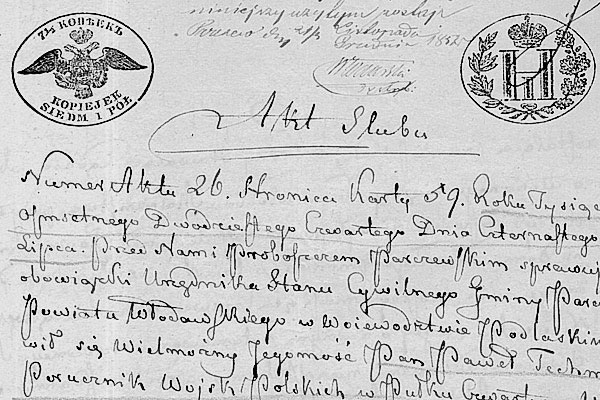 7½ КОПѢЕКЪ
KOPIEJEK
SIEDM I PÓŁ
niniejszy użytym zostaje
1852
Akt Slubu
Numer Aktu 26. Stronica Karty 59. Roku Tysiąc
Osmsetnego Dwódziestego Czwartego Dnia Czternastego
Lipca. Przed Nami Proboszczem Parczewskim sprawuj
obowiązki Urzędnika Stanu Cywilnego Gminy Parc
Powiatu Włodawskiego w Wojewodztwie Podlaskim
wił się Wielmożny Jegomość Pan Paweł Techm
Porucznik Woysk Polskich w Pułku Czwartym